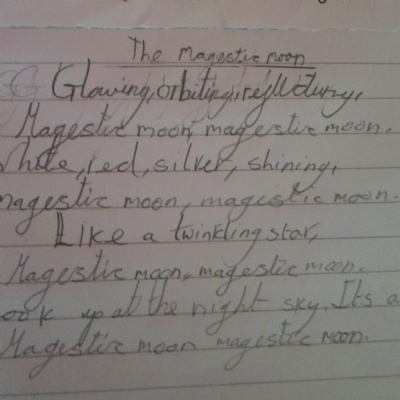 The Magestic moon
Glowing, orbiting, reflecting,
Magestic moon, magestic moon.
White, red, silver, shining,
magestic moon, magestic moon.
Like a twinkling star,
Magestic moon, magestic moon.
ook up at the night sky. Its a
Magestic moon magestic moon.